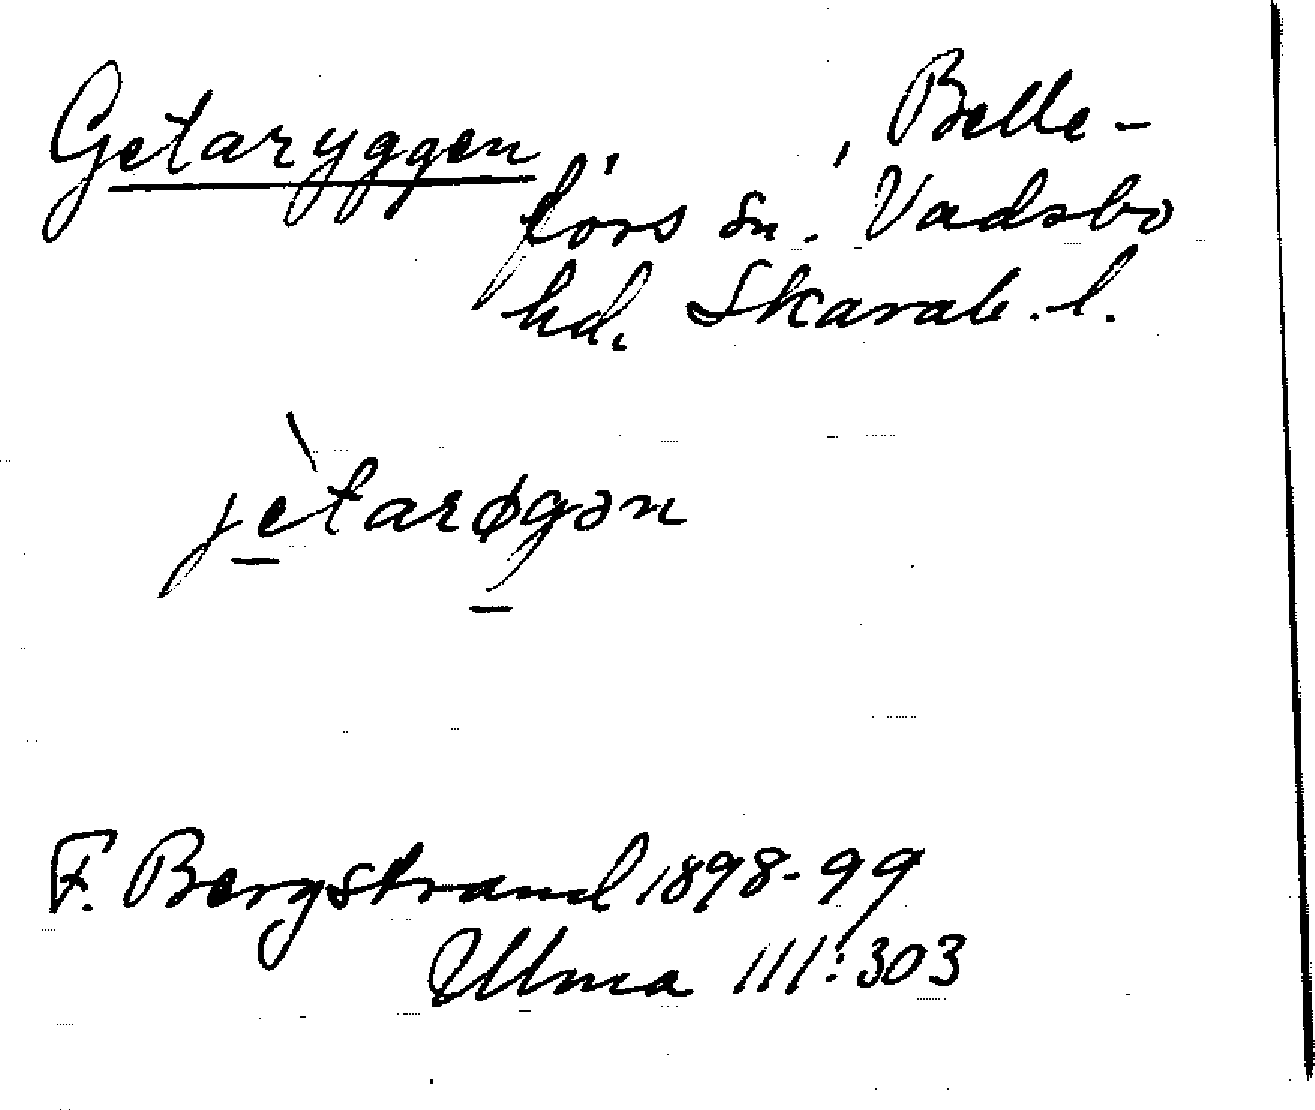 Getaryggen , , Belle-
fors sn. Vadsbo
hd. Skarab. l.
jètarøgən
F. Bergstrand 1898-99
Ulma 111:303